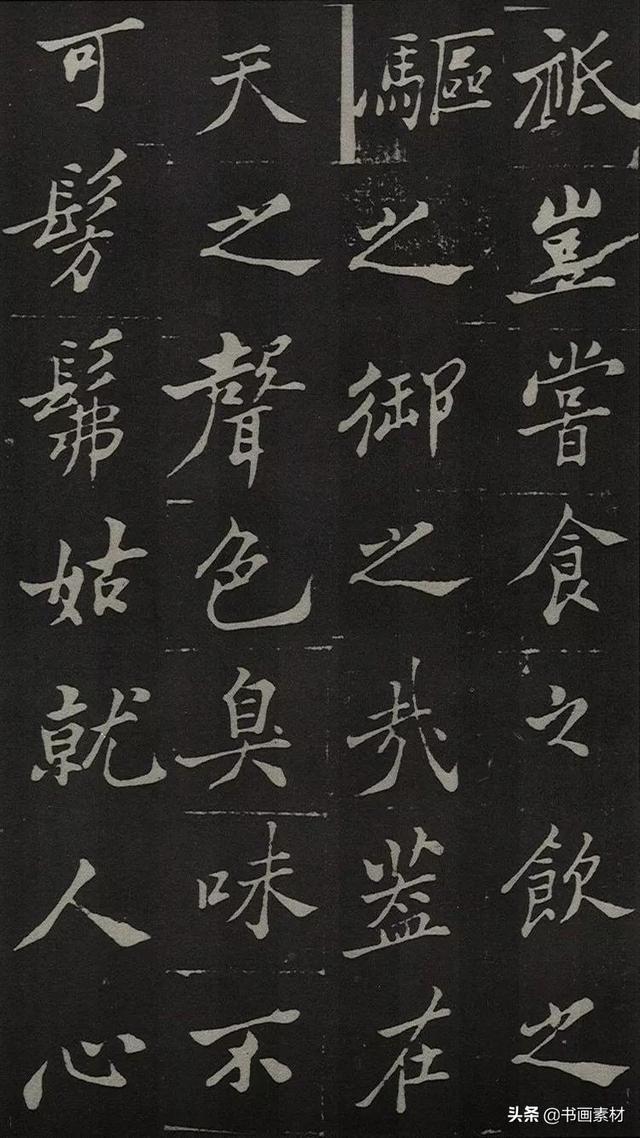 祗豈嘗食之飲之
驅之御之哉蓋在
天之聲色臭味不
可髣髴姑就人心
头条@书画素材